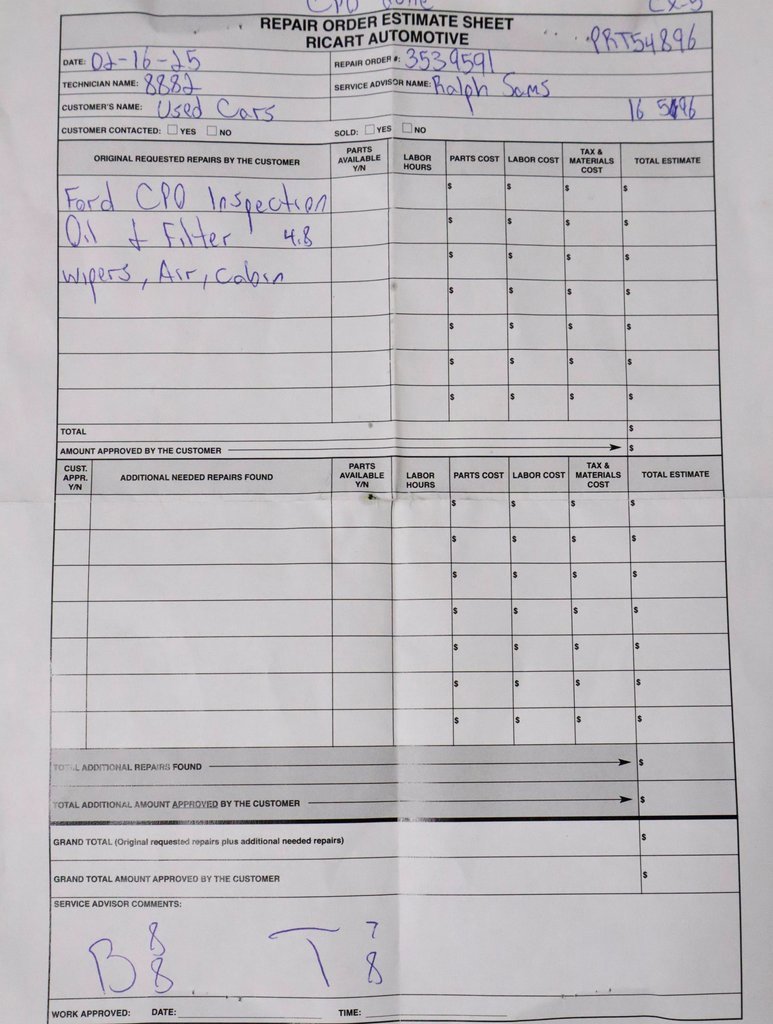 CPO done CX-5
REPAIR ORDER ESTIMATE SHEET
RICART AUTOMOTIVE
PRT54896
DATE: 02-16-25 REPAIR ORDER #: 3539591
TECHNICIAN NAME: 8882 SERVICE ADVISOR NAME: Ralph Sams
CUSTOMER'S NAME: Used Cars 16
CUSTOMER CONTACTED: YES NO SOLD: YES NO
ORIGINAL REQUESTED REPAIRS BY THE CUSTOMER PARTS AVAILABLE Y/N LABOR HOURS PARTS COST LABOR COST TAX & MATERIALS COST TOTAL ESTIMATE
Ford CPO Inspection $ $ $ $
Oil & Filter 4.8 $ $ $ $
wipers, Air, Cabin $ $ $ $
$ $ $ $
$ $ $ $
$ $ $ $
$ $ $ $
TOTAL $
AMOUNT APPROVED BY THE CUSTOMER $
CUST. APPR. Y/N ADDITIONAL NEEDED REPAIRS FOUND PARTS AVAILABLE Y/N LABOR HOURS PARTS COST LABOR COST TAX & MATERIALS COST TOTAL ESTIMATE
$ $ $ $
$ $ $ $
$ $ $ $
$ $ $ $
$ $ $ $
$ $ $ $
$ $ $ $
TOTAL ADDITIONAL REPAIRS FOUND $
TOTAL ADDITIONAL AMOUNT APPROVED BY THE CUSTOMER $
GRAND TOTAL (Original requested repairs plus additional needed repairs) $
GRAND TOTAL AMOUNT APPROVED BY THE CUSTOMER $
SERVICE ADVISOR COMMENTS:
B 8 8 T 7 8
WORK APPROVED: DATE: TIME: